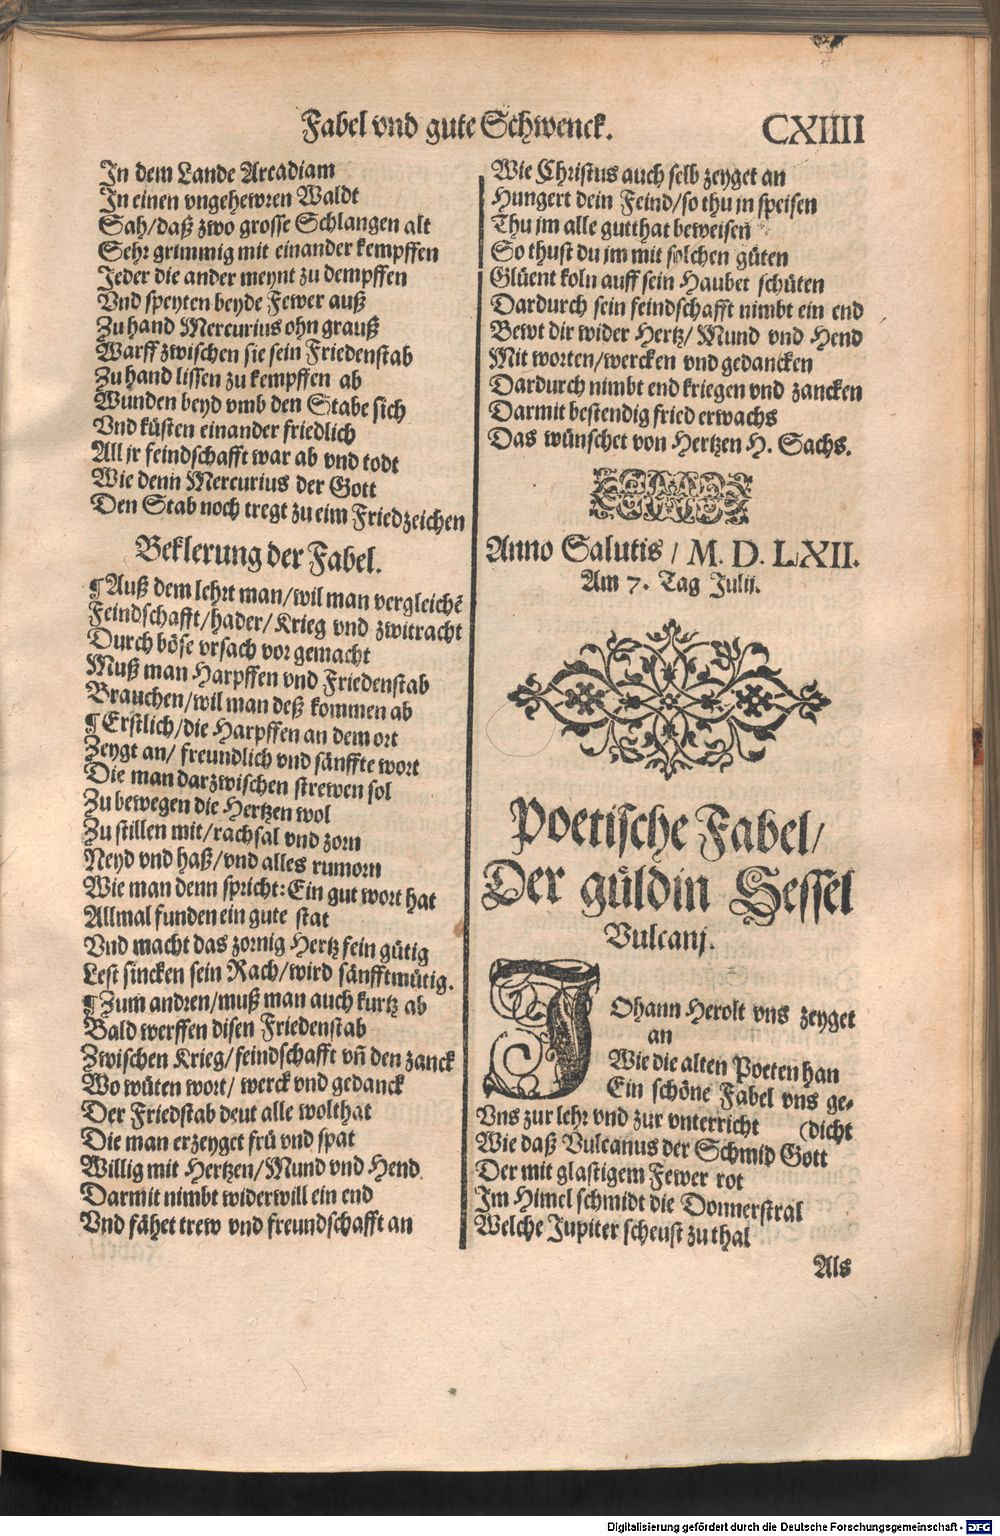 Fabel vnd gute Schwenck. CXIIII
In dem Lande Arcadiam
In einen vngehewren Waldt
Sah/daß zwo grosse Schlangen alt
Sehr grimmig mit einander kempffen
Jeder die ander meynt zu dempffen
Vnd speyten beyde Fewer auß
Zu hand Mercurius ohn grauß
Warff zwischen sie sein Friedenstab
Zu hand liessen zu kempffen ab
Wunden beyd vmb den Stabe sich
Vnd küsten einander friedlich
All jr feindschafft war ab vnd todt
Wie denn Mercurius der Gott
Den Stab noch tregt zu eim Friedzeichen
Beklerung der Fabel.
¶ Auß dem lehrt man/wil man vergleichẽ
Feindschafft/hader/Krieg vnd zwitracht
Durch böse vrsach vor gemacht
Muß man Harpffen vnd Friedenstab
Brauchen/wil man deß kommen ab
¶ Erstlich/die Harpffen an dem ort
Zeygt an/ freundlich vnd sänffte wort
Die man darzwischen strewen sol
Zu bewegen die Hertzen wol
Zu stillen mit/rachsal vnd zorn
Neyd vnd haß/vnd alles rumorn
Wie man denn spricht: Ein gut wort hat
Allmal funden ein gute stat
Vnd macht das zornig Hertz fein gütig
Lest sincken sein Rach/wird sänfftmütig.
¶ Zum andren/muß man auch kurtz ab
Bald werffen disen Friedenstab
Zwischen Krieg/feindschafft vñ den zanck
Wo wüten wort/ werck vnd gedanck
Der Friedstab deut alle wolthat
Die man erzeyget frü vnd spat
Willig mit Hertzen/Mund vnd Hend
Darmit nimbt widerwill ein end
Vnd fähet trew vnd freundschafft an
Wie Christus auch selb zeyget an
Hungert dein Feind/so thu jn speisen
Thu jm alle gutthat beweisen
So thust du jm mit solchen güten
Glüent koln auff sein Haubet schüten
Dardurch sein feindschafft nimbt ein end
Bewt dir wider Hertz/ Mund vnd Hend
Mit worten/wercken vnd gedancken
Dardurch nimbt end kriegen vnd zancken
Darmit bestendig fried erwachs
Das wünschet von Hertzen H. Sachs.
Anno Salutis / M. D. LXII.
Am 7. Tag Julij.
Poetische Fabel/
Der güldin Sessel
Vulcanj.
JOhann Herolt vns zeyget
an
Wie die alten Poeten han
Ein schöne Fabel vns ge-
Vns zur lehr vnd zur vnterricht (dicht
Wie daß Vulcanus der Schmid Gott
Der mit glastigem Fewer rot
Im Himel schmidt die Donnerstral
Welche Jupiter scheust zu thal
Als
Digitalisierung gefördert durch die Deutsche Forschungsgemeinschaft - DFG